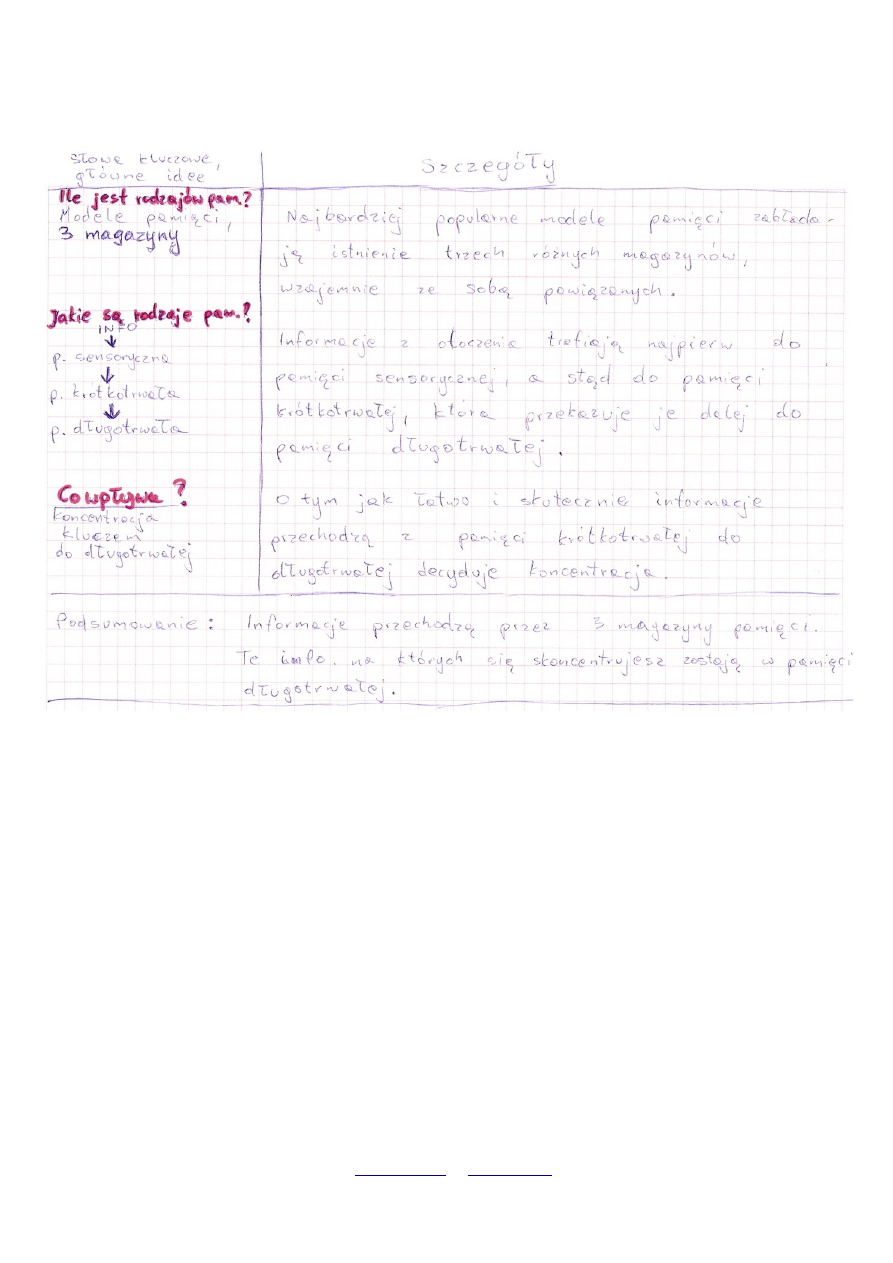 słowa kluczowe,
główne idee
Szczegóły
Ile jest rodzajów pam.?
Modele pamięci,
3 magazyny
Najbardziej popularne modele pamięci zakłada-
ją istnienie trzech różnych magazynów,
wzajemnie ze sobą powiązanych.
Jakie są rodzaje pam.?
INFO
p. sensoryczna
p. krótkotrwała
p. długotrwała
Informacje z otoczenia trafiają najpierw do
pamięci sensorycznej, a stąd do pamięci
krótkotrwałej, która przekazuje je dalej do
pamięci długotrwałej.
Co wpływa?
Koncentracja
kluczem
do długotrwałej
O tym jak łatwo i skutecznie informacje
przechodzą z pamięci krótkotrwałej do
długotrwałej decyduje koncentracja.
Podsumowanie: Informacje przechodzą przez 3 magazyny pamięci.
Te info. na których się skoncentrujesz zostają w pamięci
długotrwałej.